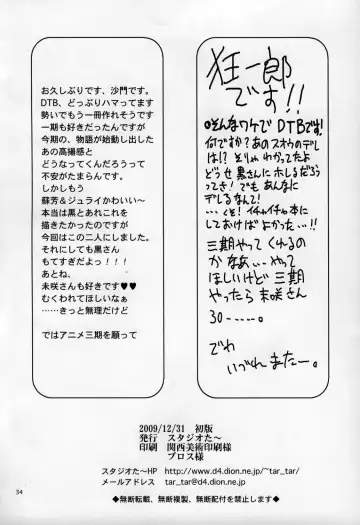 お久しぶりです、沙門です。
DTB、どっぷりハマってます
勢いでもう一冊作れそうです
一期も好きだったんですが
今期の、物語が始動し出した
あの高揚感と
どうなってくんだろうって
不安がたまらんです。
しかしもう
蘇芳&ジュライかわいい〜
本当は黒とあれこれを
描きたかったのですが
今回はこの二人にしました。
それにしても黒さん
もてすぎだよっ!!!
あとね、
未咲さんも好きです♥♥
むくわれてほしいなぁ
……きっと無理だけど
ではアニメ三期を願って
狂一郎
です!!
のそんなワケで DTBです!
何ですか?あのスオウのデレ
は!? とりゃ わかってたよ
どうせ黒さんに ホレるだろう
ってさ! でも あんなに
デレるなんて!
……くそ! イチャイチャ本に
しておけばよかった…!!
三期やって くれるの
かなあ… やって
ほしいけど 三期
やったら 未咲さん
30-----。
でわ
いづれまたー。
2009/12/31 初版
発行 スタジオた〜
印刷 関西美術印刷様
プロス様
スタジオた〜HP http://www.d4.dion.ne.jp/~tar_tar/
メールアドレス tar_tar@d4.dion.ne.jp
◆無断転載、無断複製、無断配付を禁止します◆
34